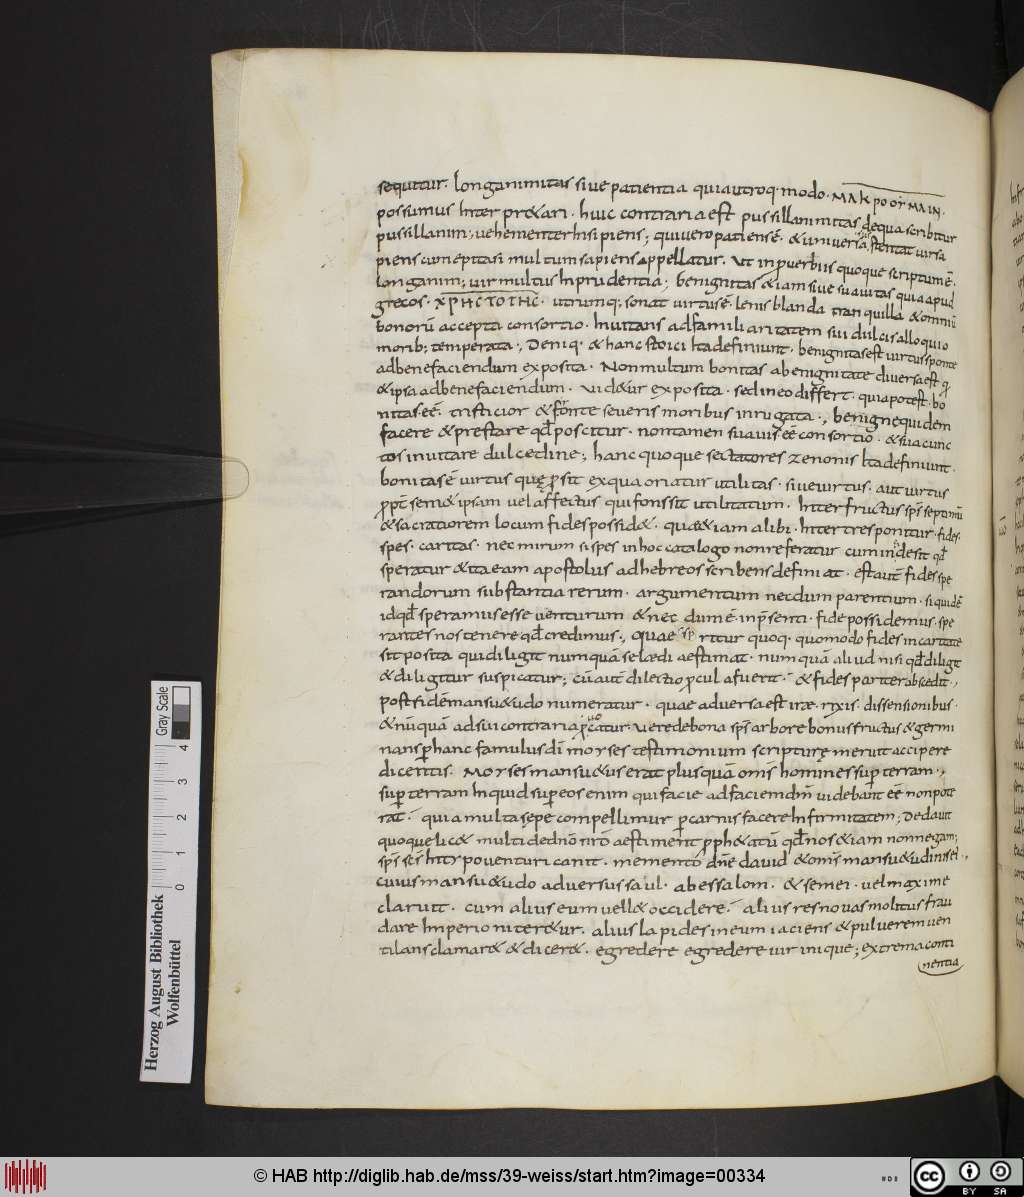 sequitur. longanimitas siue patientia quia utroq. modo. ΜΑΚΡΟΘΥΜΙΑΝ.
possumus interpr&ari. huic contraria est pussillanimitas de qua scribitur
pussillanim; uehementer insipiens; qui uero patiens ē. & uniuersa sustentat uir sa
piens cum epitasi multum sapiens appellatur. ut in prouerbiis quoque scriptum ē.
longanim; uir multus in prudentia; benignitas &iam siue suauitas quia apud
grecos. ΧΡΗCΤΟΤΗC. utrumq; sonat uirtus ē. lenis blanda tranquilla & omniū
bonorū accepta consortio. Inuitans ad familiaritatem sui dulcis alloquio
morib; temperata., Deniq. & hanc stoici ita definiunt. benignitas est uirtus sponte
ad benefaciendum exposita. Non multum bonitas a benignitate diuersa est q̄
& ipsa ad benefaciendum. uid&ur exposita. sed in eo differt. quia potest. bo
nitas eē. tristicior & fronte seueris moribus inrugata., bene quidem
facere & prestare qd poscitur. non tamen suauis eē consortio. & sua cunc
tos inuitare dulcedine; hanc quoque sectatores zenonis ita definiunt.
bonitas ē uirtus quę p̄sit ex qua oriatur utilitas. siue uirtus. aut uirtus
ppt sem&ipsam uel affectus qui fons sit utilitatum. Inter fructus sp̄s septimū
& sacratiorem locum fides possid&. quae &iam alibi. Inter tres ponitur. fides.
spes. caritas. nec mirum si spes in hoc catalogo non referatur cum in fide sit qd
speratur & ita eam apostolus ad hebreos scribens definiat. est aut fides spe
randorum substantia rerum. argumentum necdum parentium. siquidē
id qd speramus esse uenturum & nec dum ē in p̄senti. fide possidemus. spe
rantes nos tenere qd credimus., Quaeritur quoq. quomodo fides in caritate
sit posita qui diligit numquā se laedi aestimat. numquā aliud nisi qd diligit
& diligitur suspicatur; cū aut dilectio pcul afuerit. & fides pariter abscedit.,
post fidē mansu&udo numeratur. quae aduersa est irae. rixis. dissensionibus.
& nūquā ad sui contraria puocatur. uere de bona sp̄s arbore bonus fructus & germi
nans p hanc famulus dī moyses testimonium scripturę meruit accipere
dicentis. moyses mansu&us erat plus quā omīs homines sup terram.,
sup terram inquid sup eos enim qui facie ad faciem dn̄m uidebant eē non pote
rat. quia multa sępe compellimur p carnis facere infirmitatem; De dauit
quoque lic& multi de dn̄o nro aestiment pph&atū qd nos &iam non negam;
sp̄s scs intypo uenturi canit. memento dn̄e dauid & omīs mansu&udinis ei.,
cuius mansu&udo aduersus saul. abessalom. & semei. uel maxime
claruit. cum alius eum uell& occidere. alius res nouas molitus frau
dare imperio niter&ur. alius lapides in eum iaciens & puluerem uen
tilans clamar& & dicer&. egredere egredere uir inique; extrema conti
nentia
Herzog August Bibliothek
Wolfenbüttel
0 1 2 3 4
Gray Scale
© HAB http://diglib.hab.de/mss/39-weiss/start.htm?image=00334
cc BY SA